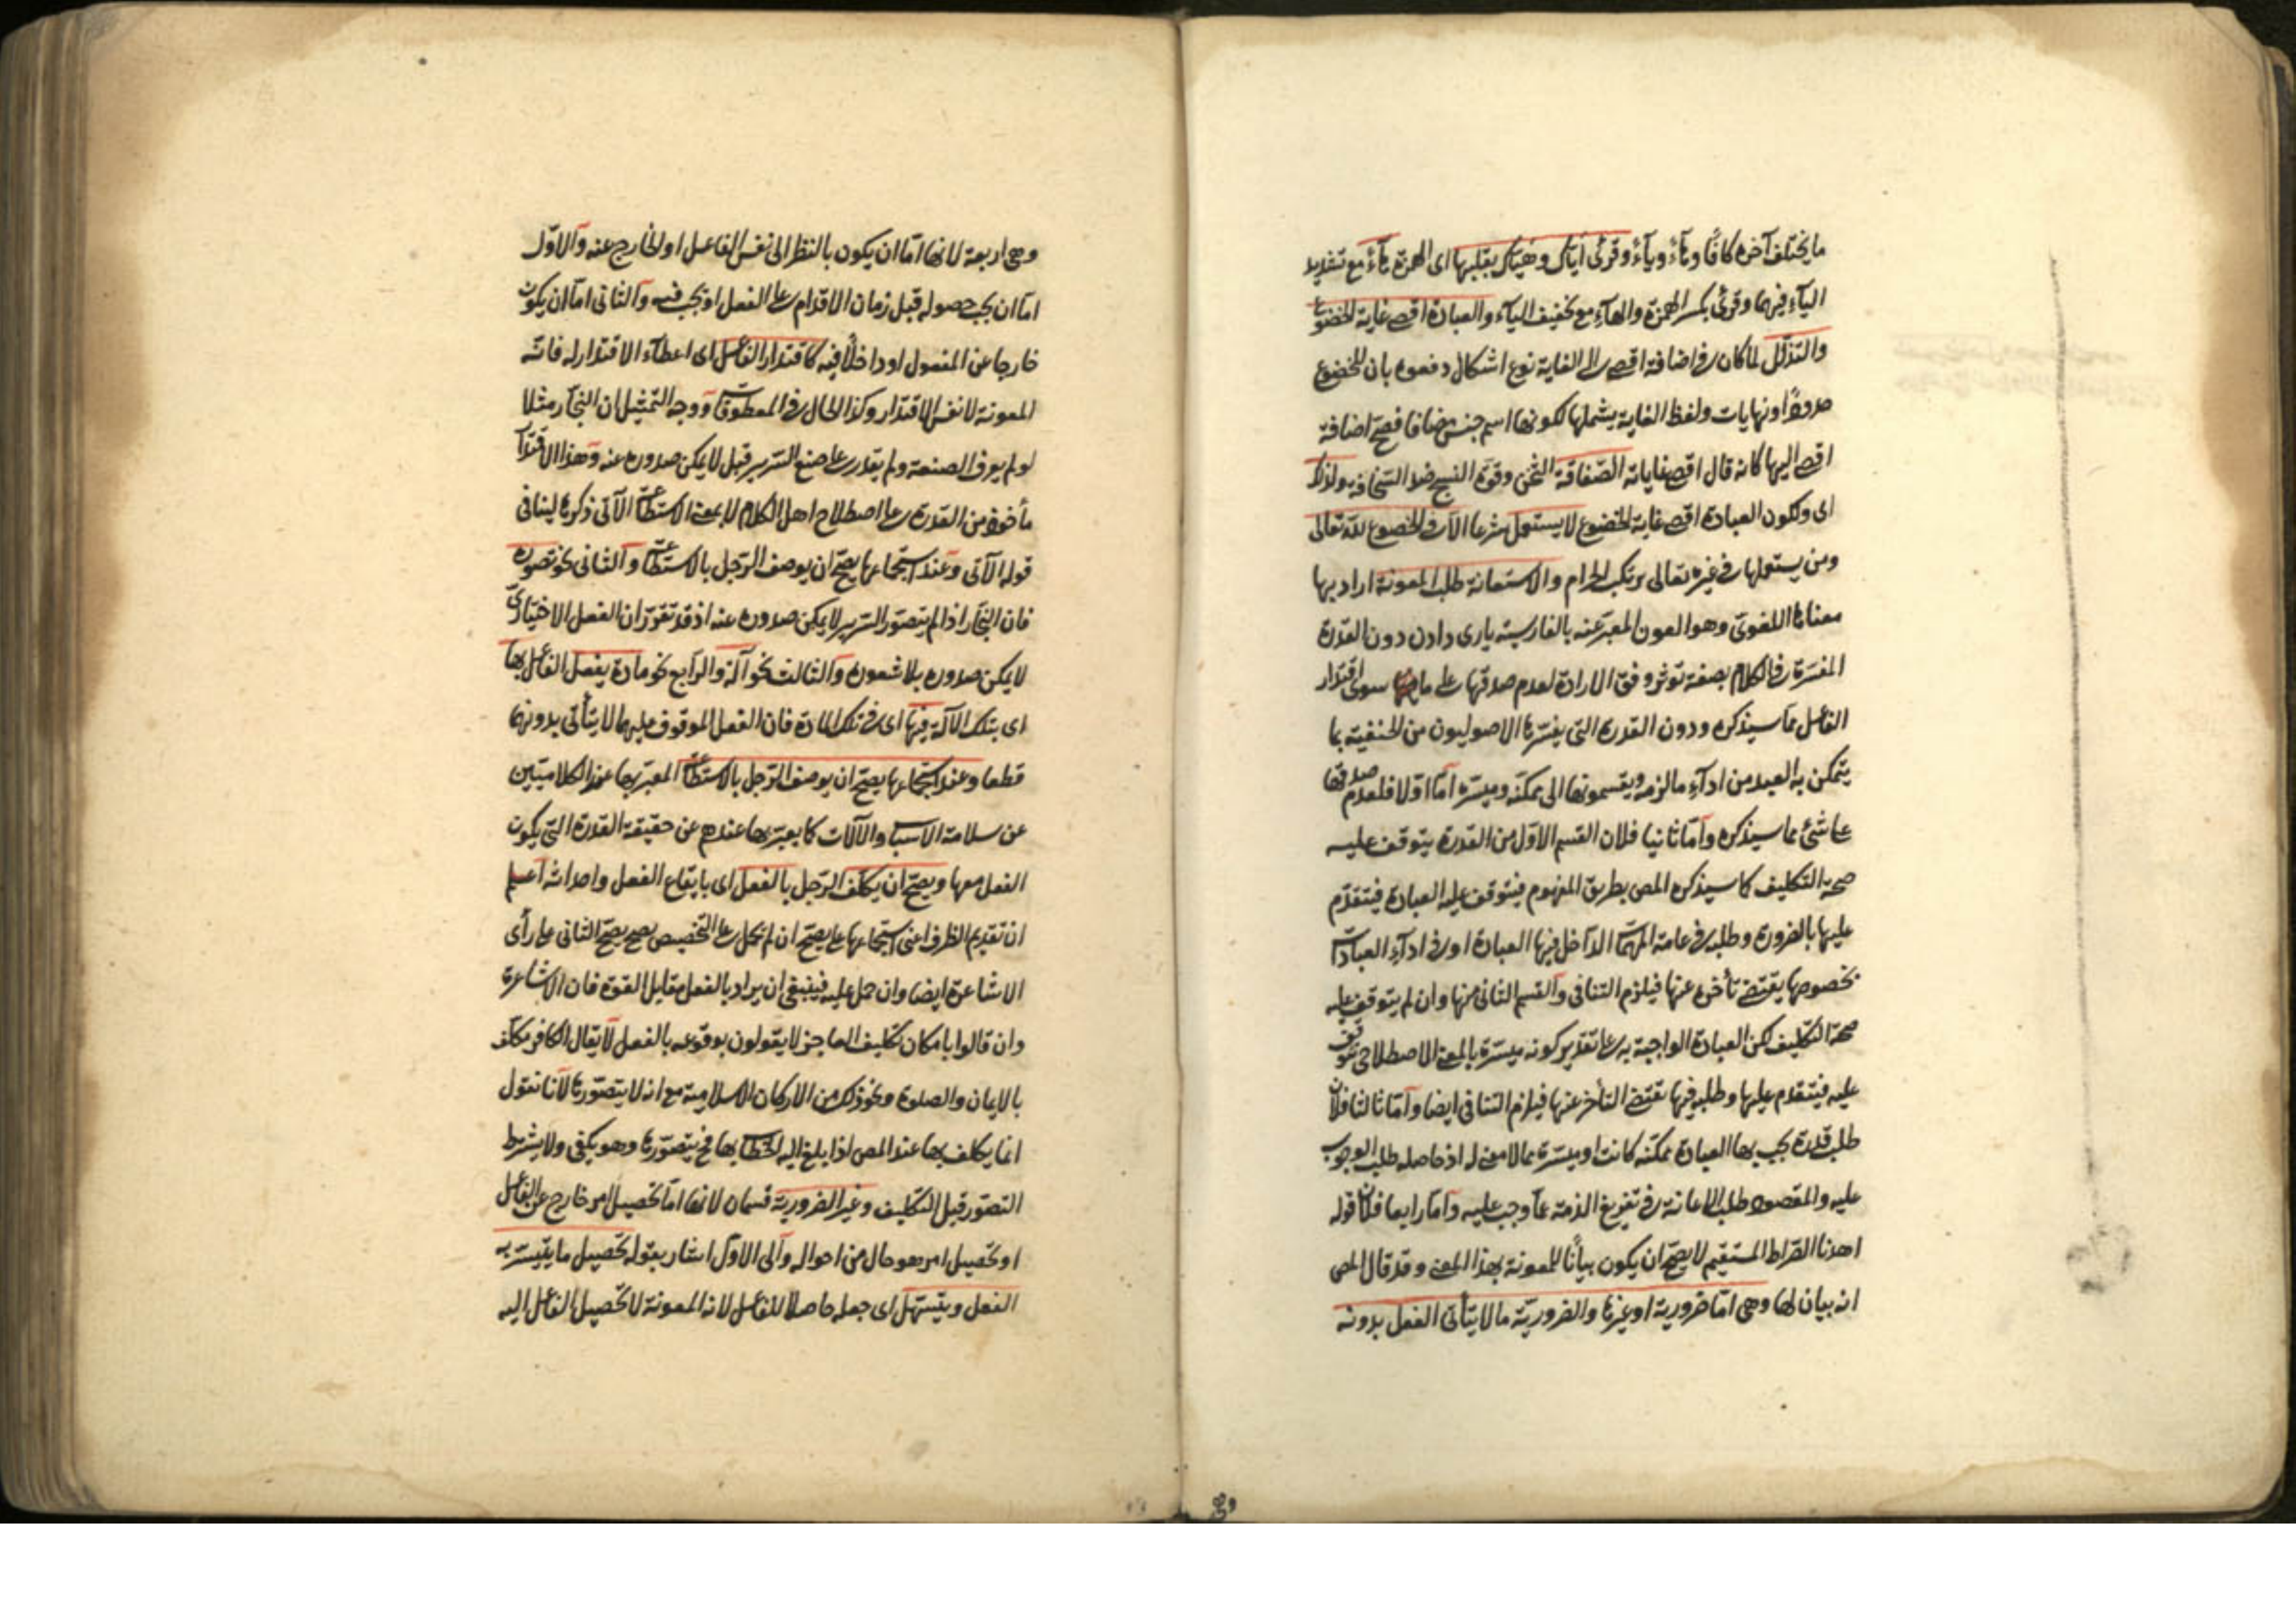 ما يختلف آخره كافًا وهآءً ويآءً وقرئ أياك وهياك بقلبها اى الهمزة هآءً مع تشديد
اليآء فيهما وقرئ بكسر الهمزة والهآء مع تخفيف اليآء والعبادة اقصى غاية الخضوع
والتذلل لما كان فى اضافة اقصى الى الغاية نوع اشكال دفعوه بان للخضوع
حدودًا ونهايات ولفظ الغاية يشملها لكونها اسم جنس مضافا فصح اضافة
اقصى اليها كانه قال اقصى غاياته الصفاقة الثخن وقوة النسج ضد السخافة ولذلك
اى ولكون العبادة اقصى غاية الخضوع لا يستعمل شرعا الا فى الخضوع لله تعالى
ومن يستعملها فى غيره تعالى يرتكب الحرام والاستعانة طلب المعونة اراد بها
معناها اللغوى وهو العون المعبر عنه بالفارسية يارى دادن دون القدرة
المفسرة فى الكلام بصفة تؤثر وفق الارادة لعدم صدقها على ما سوى اقتدار
الفاعل مما سيذكره ودون القدرة التى يفسرها الاصوليون من الحنفية بما
يتمكن به العبد من ادآء ما لزمه ويقسمونها الى ممكنة وميسرة اما اولا فلعدم صدقها
على شئ مما سيذكره وأما ثانيا فلان القسم الاول من القدرة يتوقف عليه
صحة التكليف كما سيذكره المص بطريق المفهوم فيتوقف عليه العبادة فيتقدم
عليها بالضرورة وطلبه فى عامة المهمات الداخل فيها العبادة او فى ادآء العبادات
بخصوصها يقتضى تأخره عنها فيلزم التنافى والقسم الثانى منها وان لم يتوقف عليه
صحة التكليف لكن العبادة الواجبة به على تقدير كونه ميسرة بالمعنى الاصطلاحى تتوقف
عليه فيتقدم عليها وطلبه فيها تقتضى التأخر عنها فيلزم التنافى ايضا وأما ثالثا فلان
طلب قدرة يجب بها العبادة ممكنة كانت او ميسرة مما لا معنى له اذ حاصله طلب الوجوب
عليه والمقصود طلب الاعانة فى تفريغ الذمة عما وجب عليه وأما رابعا فلان قوله
اهدنا الصراط المستقيم لا يصح ان يكون بيانًا للمعونة بهذا المعنى وقد قال المص
انه بيان لها وهى اما ضرورية او غيرها والضرورية ما لا يتأتى الفعل بدونه
وهى
وهى اربعة لانها اما ان يكون بالنظر الى نفس الفاعل او الخارج عنه والاول
اما ان يجب حصوله قبل زمان الاقدام على الفعل او يجب فيه والثانى اما ان يكون
خارجا عن المفعول او داخلًا فيه كاقتدار الفاعل اى اعطآء الاقتدار له فانه
المعونة لا نفس الاقتدار وكذا الحال فى المعطوفات ووجه التمثيل ان النجار مثلا
لو لم يعرف الصنعة ولم يقدر على صنع السرير قبل لا يمكن صدوره عنه وهذا الاقتدار
مأخوذ من القدرة على اصطلاح اهل الكلام لا بمعنى الاستطاعة الآتى ذكرها لينافى
قوله الآتى وعند استجماعها يصح ان يوصف الرجل بالاستطاعة والثانى نحو تصوره
فان النجار اذا لم يتصور السرير لا يمكن صدوره عنه اذ قد تقرر ان الفعل الاختيارى
لا يمكن صدوره بلا شعوره والثالث نحو آلة والرابع نحو مادة يفعل الفاعل بها
اى بتلك الآلة فيها اى فى تلك المادة فان الفعل الموقوف عليهما لا يتأتى بدونهما
قطعا وعند استجماعها يصح ان يوصف الرجل بالاستطاعة المعبر بها عند الكلاميين
عن سلامة الاسباب والآلات كما يعبر بها عندهم عن حقيقة القدرة التى يكون
الفعل معها ويصح ان يكلف الرجل بالفعل اى بايقاع الفعل واحداثه اعلم
ان تقديم الظرف اعنى استجماعها على يصح ان لم يحمل على التخصيص يصح يصح الثانى على رأى
الاشاعرة ايضا وان حمل عليه فينبغى ان يراد بالفعل مقابل القوة فان الاشاعرة
وان قالوا بامكان تكليف العاجز لا يقولون بوقوعه بالفعل لا يقال الكافر مكلف
بالايمان والصلوة ونحو ذلك من الاركان الاسلامية مع انه لا يتصورها لانا نقول
انما يكلف بها عند المص اذا بلغ اليه الخطاب بها فح يتصورها وهو يكفى ولا يشترط
التصور قبل التكليف وغير الضرورية قسمان لانها اما تحصيل امر خارج عن الفاعل
او تحصيل امر هو حال من احواله والى الاول اشار بقوله تحصيل ما يتيسر به
الفعل ويتسهل اى جعله حاصلا للفاعل لانه المعونة لا تحصيل الفاعل اليه